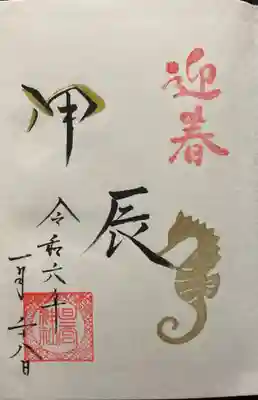 迎春
甲
辰
令和六年
一月 八日